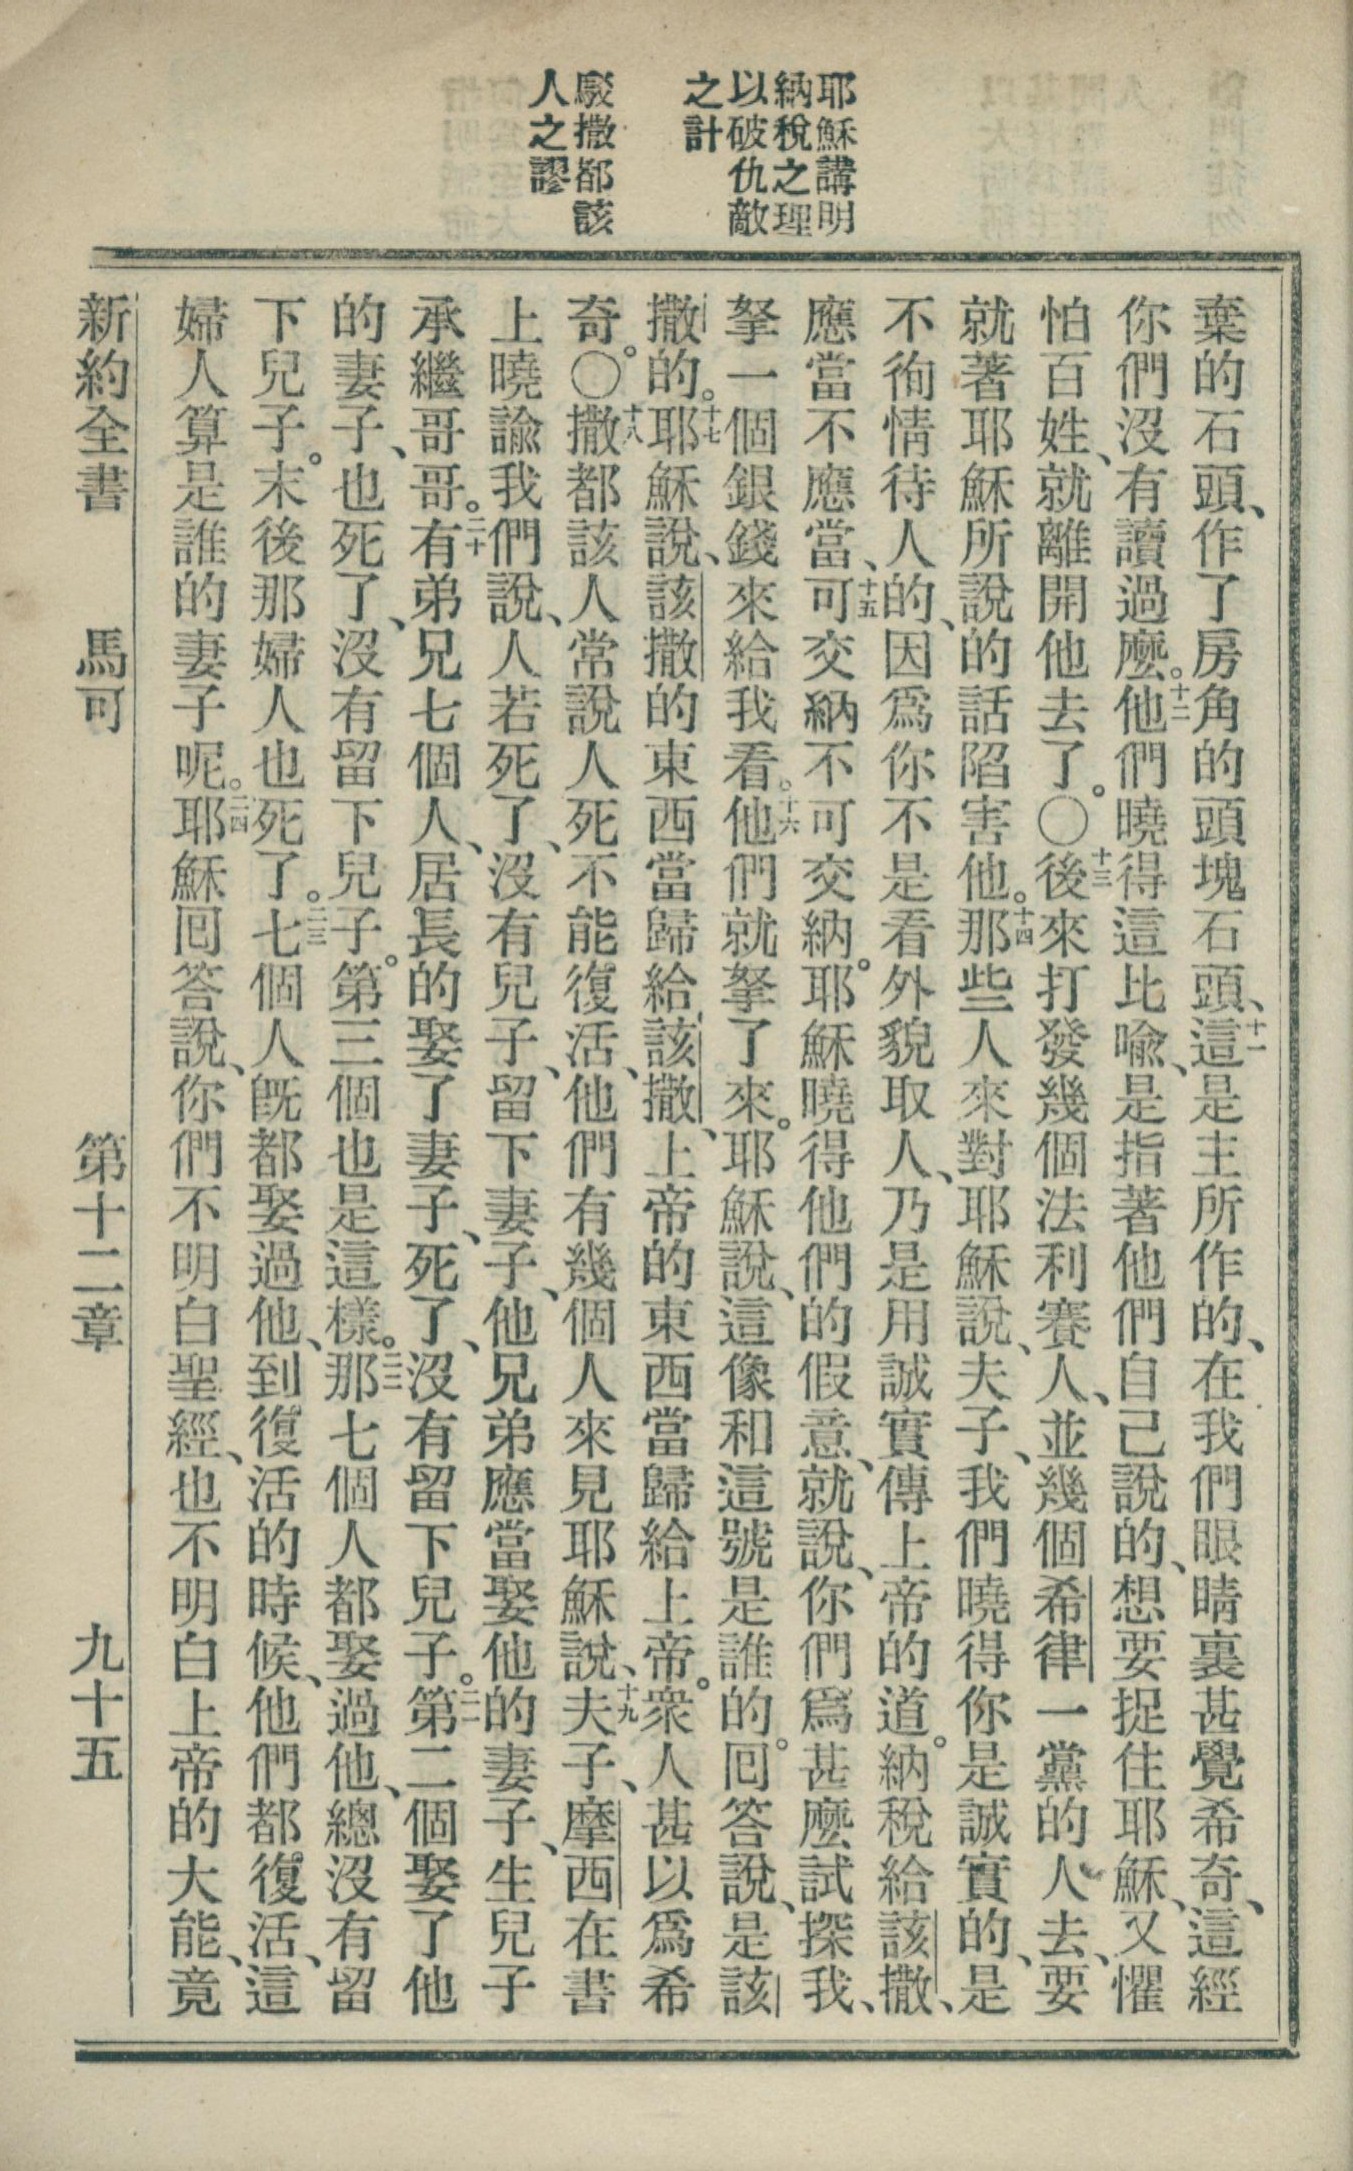 耶穌講明
納稅之理
以破仇敵
之計
駁撒都該
人之謬
棄的石頭、作了房角的頭塊石頭、十一這是主所作的、在我們眼睛裏甚覺希奇、這經
你們沒有讀過麼。十二他們曉得這比喻、是指著他們自己說的、想要捉住耶穌、又懼
怕百姓、就離開他去了。〇十三後來打發幾個法利賽人、並幾個希律一黨的人去、要
就著耶穌所說的話陷害他。十四那些人來對耶穌說、夫子、我們曉得你是誠實的、是
不徇情待人的、因爲你不是看外貌取人、乃是用誠實傳上帝的道。納稅給該撒、
應當不應當、十五可交納不可交納。耶穌曉得他們的假意、就說、你們爲甚麼試探我、
拏一個銀錢來給我看。十六他們就拏了來。耶穌說、這像和這號是誰的。囘答說、是該
撒的。十七耶穌說、該撒的東西當歸給該撒、上帝的東西當歸給上帝。衆人甚以爲希
奇。〇十八撒都該人常說人死不能復活、他們有幾個人來見耶穌說、十九夫子、摩西在書
上曉諭我們說、人若死了、沒有兒子、留下妻子、他兄弟應當娶他的妻子、生兒子
承繼哥哥。二十有弟兄七個人、居長的娶了妻子、死了、沒有留下兒子。二一第二個娶了他
的妻子、也死了、沒有留下兒子。第三個也是這樣。二二那七個人都娶過他、總沒有留
下兒子。末後那婦人也死了。二三七個人旣都娶過他、到復活的時候、他們都復活、這
婦人算是誰的妻子呢。二四耶穌囘答說、你們不明白聖經、也不明白上帝的大能、竟
新約全書 馬可 第十二章 九十五